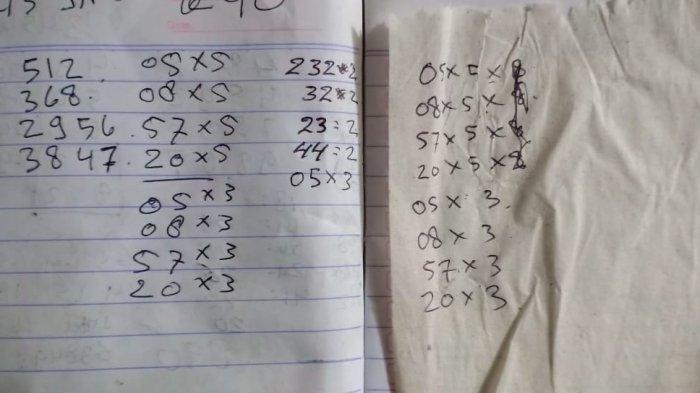 512 05×5 232×2
368. 08×5 32×2
2956. 57×5 23=2
3847. 20×5 44=2
05×3 05×3
08×3
57×3
20×3
05×5×8
08×5×8
57×5×8
20×5×8
05×3.
08×3
57×3
20×3